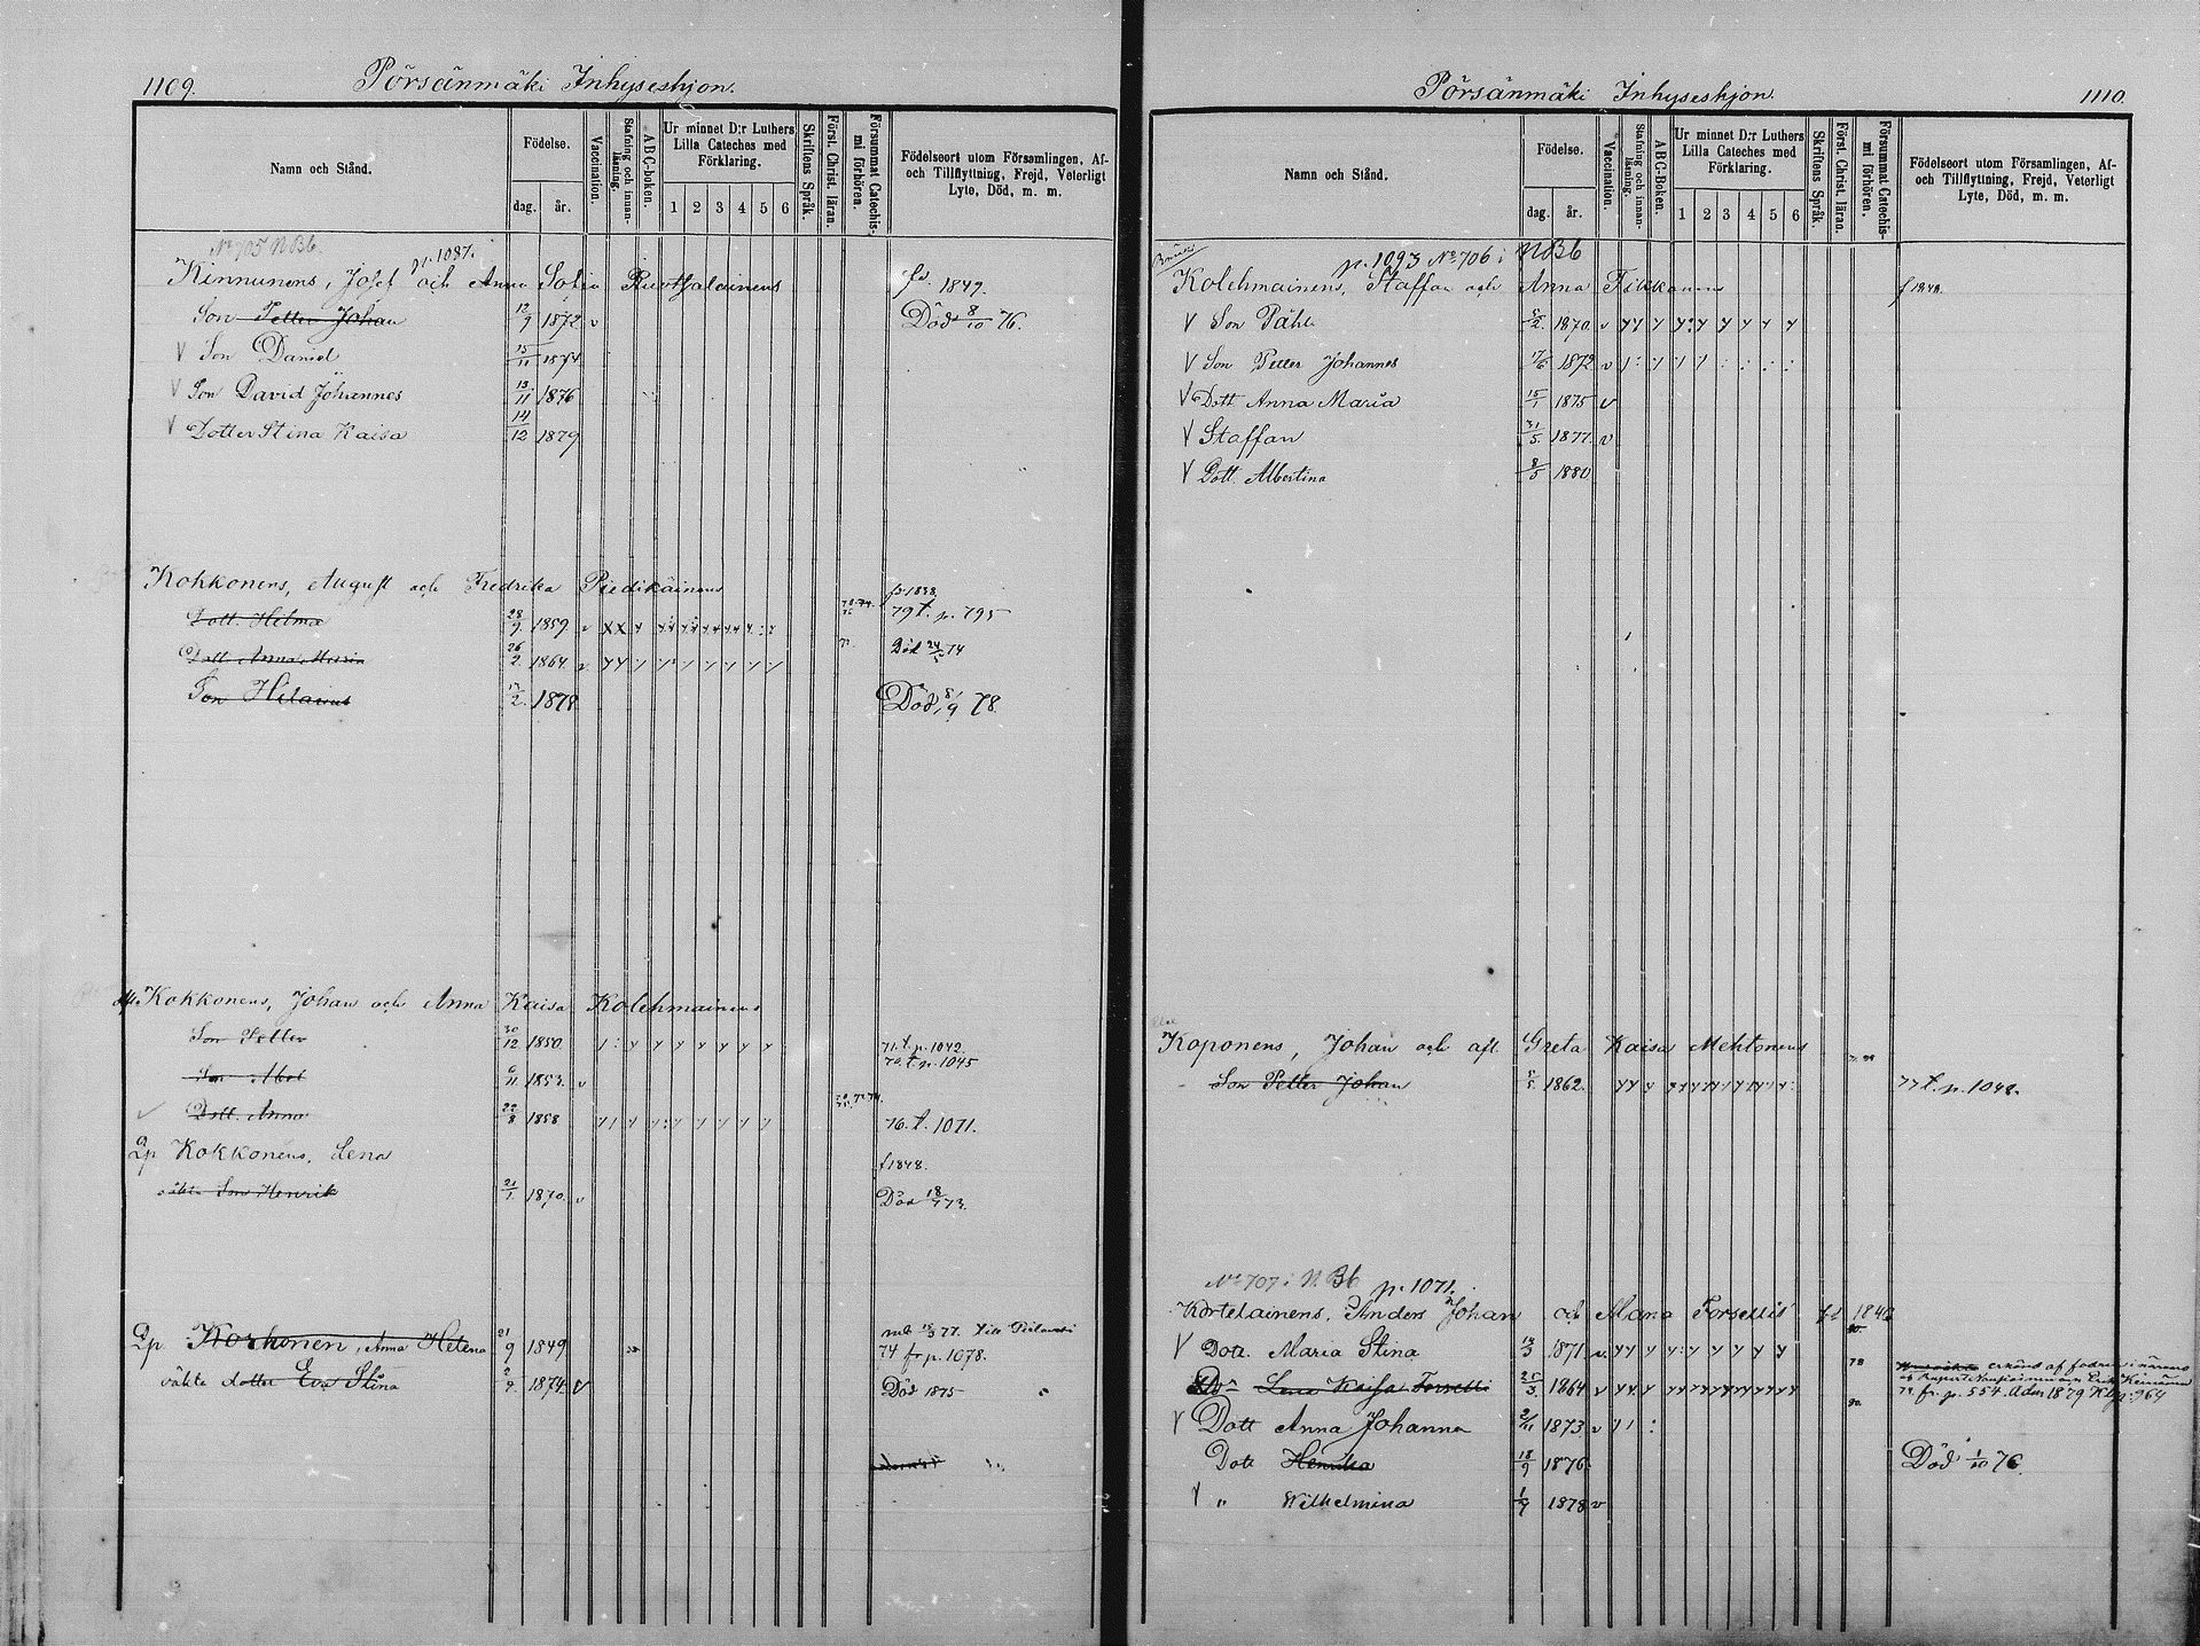 1109. Pörsänmäki Inhyseshjon.
Namn och Stånd.
Födelse.
dag. år.
Vaccination.
Stafning och innan-läsning.
ABC-boken.
Ur minnet D:r Luthers Lilla Cateches med Förklaring.
1 2 3 4 5 6
Skriftens Språk.
Först. Christ. läran.
Försummat Catechis-mi förhören.
Födelseort utom Församlingen, Af- och Tillflyttning, Frejd, Veterligt Lyte, Död, m. m.
No 705 N Bb. p. 1087.
Kinnunens, Josef och Anna Sofia Ruotsalainens 1849.
Son Petter Johan 12/9 1872 v Död 8/10 76.
V Son Daniel 15/11 1874
V Son David Johannes 13/11 1876
V Dotter Stina Kaisa 14/12 1879
Kokkonens, August och Fredrika Piedikäinens f. 1838.
Dott. Hilma 28/9 1859 v 79 t. p. 795
Dott. Anna Maria 26/2 1864 v Död 24/5 74
Son Hilarius 17/2 1878 Död 8/9 78.
Kokkonens, Johan och Anna Kaisa Kolehmainens
Son Petter 30/12 1850 71. t. p. 1042.
Son Abel 6/11 1853. v 70. t. p. 1045
Dott. Anna 22/8 1858 76. t. 1071.
Qp Kokkonens, Lena f 1848.
Son Henrik 21/1 1870. v Död 18/1 73.
Qp. Korhonen, Anna Helena 21/9 1849 74 fr p. 1078.
oäkta dotter Eva Stina 2/9 1874 v Död 1875
Pörsänmäki Inhyseshjon. 1110.
Namn och Stånd.
Födelse.
dag. år.
Vaccination.
Stafning och innan-läsning.
ABC-Boken.
Ur minnet D:r Luthers Lilla Cateches med Förklaring.
1 2 3 4 5 6
Skriftens Språk.
Först. Christ. läran.
Försummat Catechis-mi förhören.
Födelseort utom Församlingen, Af- och Tillflyttning, Frejd, Veterligt Lyte, Död, m. m.
p. 1093 No 706 i N Bb
Kolehmainens, Staffan och Anna Tikkanens f 1848.
V Son Påhl 5/2 1870. v
V Son Petter Johannes 17/6 1872 v
V Dott. Anna Maria 15/1 1875 v
V Staffan 31/5 1877. v
V Dott. Albertina 8/5 1880
Koponens, Johan och afl. Greta Kaisa Mehtonens
Son Petter Johan 5/5 1862. 77 t. p. 1048.
No 707 i N. Bb p. 1071.
Kortelainens, Anders Johan och Maria Forsellis
V Dott. Maria Stina 13/3 1871. v
Lena Kaisa Forselli 25/3 1864 v
79. fr. p. 554.
V Dott Anna Johanna 2/11 1873 v
Dott Henrika 18/9 1876. Död 1/10 76.
V " Wilhelmina 1/9 1878 v